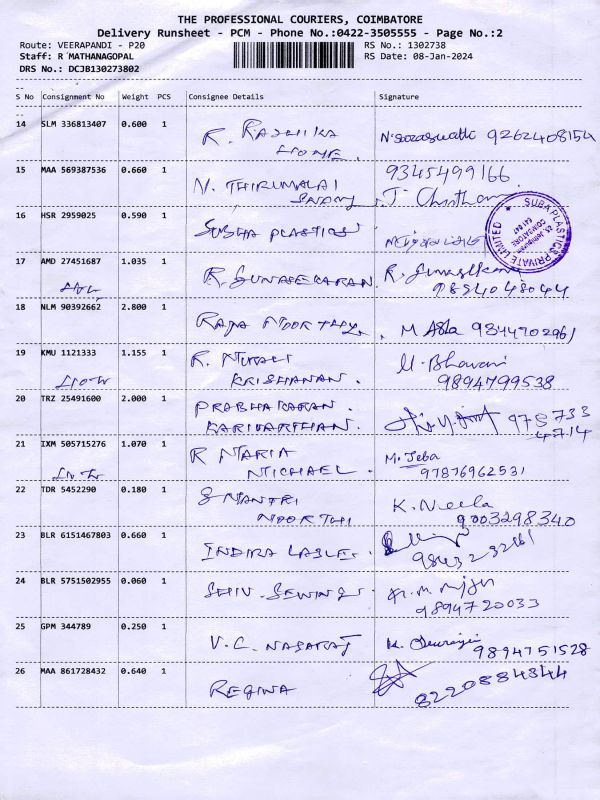 THE PROFESSIONAL COURIERS, COIMBATORE
Delivery Runsheet - PCM - Phone No.:0422-3505555 - Page No.:2
Route: VEERAPANDI - P20 RS No.: 1302738
Staff: R MATHANAGOPAL RS Date: 08-Jan-2024
DRS No.: DCJB130273802
S No Consignment No Weight PCS Consignee Details Signature
14 SLM 336813407 0.600 1 R. RADHIKA N. Saraswathi 9262408154
HOME.
15 MAA 569387536 0.660 1 N. THIRUMALAI 9345499166
16 HSR 2959025 0.590 1 SUBHA PLASTICS
SUBA PLASTICS PRIVATE LIMITED
COIMBATORE
641 047
17 AMD 27451687 1.035 1 R. GUNASEKARAN. R.
9894048044
18 NLM 90392662 2.800 1 RAJA MOORTHY. M Asla 9344702961
19 KMU 1121333 1.155 1 R. MURALI U. Bhavani
KRISHANAN. 9894799538
20 TRZ 25491600 2.000 1 PRABHAKARAN. 978733
HARIVARTHAN. 4714
21 IXM 505715276 1.070 1 R MARIA M. Jeba
MICHAEL. 97876962531
22 TDR 5452290 0.180 1 S MANTRI K. Neela
MOORTHI 9003298340
23 BLR 6151467803 0.660 1 INDIRA LABLES.
24 BLR 5751502955 0.060 1 SHIV. SEWINGS
9894720033
25 GPM 344789 0.250 1 V.C. NAGARAJ 9894751528
26 MAA 861728432 0.640 1 REGINA 8220884344